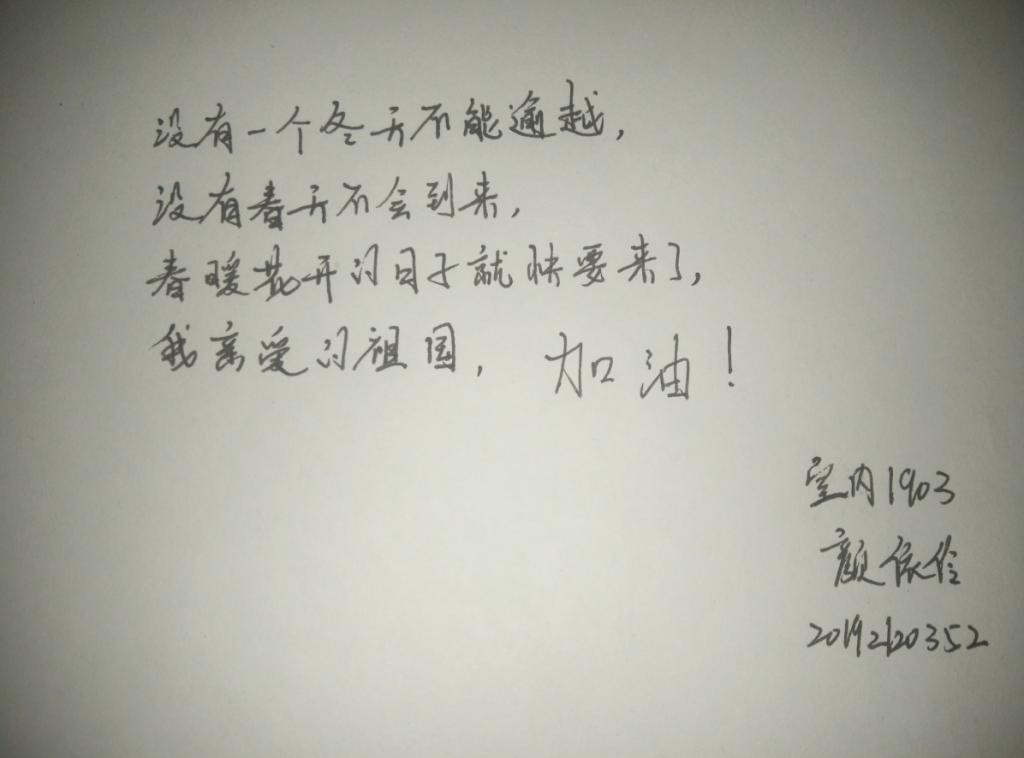 没有一个冬天不能逾越，
没有春天不会到来，
春暖花开的日子就快要来了，
我亲爱的祖国，加油！
室内1903
颜依伶
20192120352